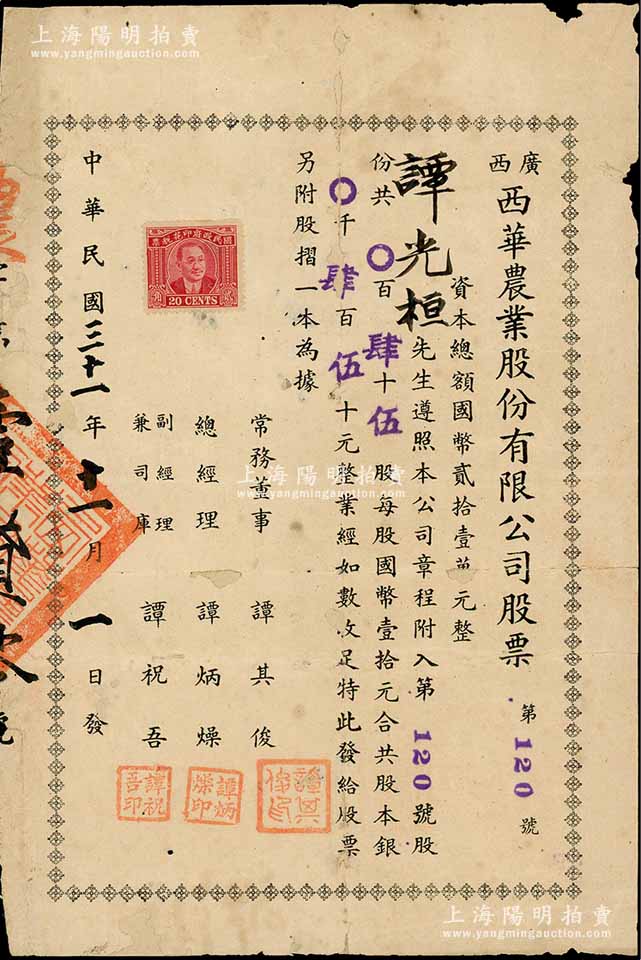 上海陽明拍賣
www.yangmingauction.com
廣西
西華農業股份有限公司股票
第120號
資本總額國幣貳拾壹萬元整
譚光桓先生遵照本公司章程附入第120號股
份共〇百肆十伍股每股國幣壹拾元合共股本銀
〇千肆百伍十元整業經如數收足特此發給股票
另附股摺一本為據
國民政府印花稅票
20 CENTS
常務董事 譚其俊
總經理 譚炳燥
副經理
兼司庫 譚祝吾
譚其俊印
譚炳燥印
譚祝吾印
中華民國三十一年十一月一日發
上海陽明拍賣
www.yangmingauction.com
號
上海陽明拍賣
www.yangmingauction.com